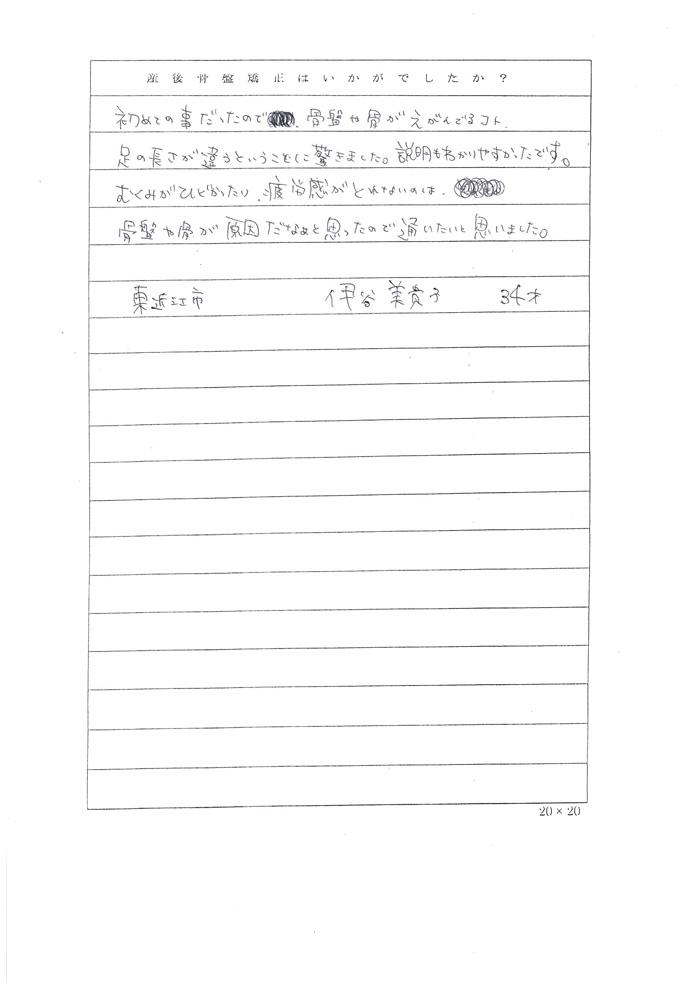 産後骨盤矯正はいかがでしたか？
初めての事だったので、骨盤や骨がえがんでるコト、
足の長さが違うということに驚きました。説明もわかりやすかったです。
むくみがひどかったり、疲労感がとれないのは、
骨盤や骨が原因だなぁと思ったので通いたいと思いました。
東近江市 伊谷 美貴子 34才
20×20